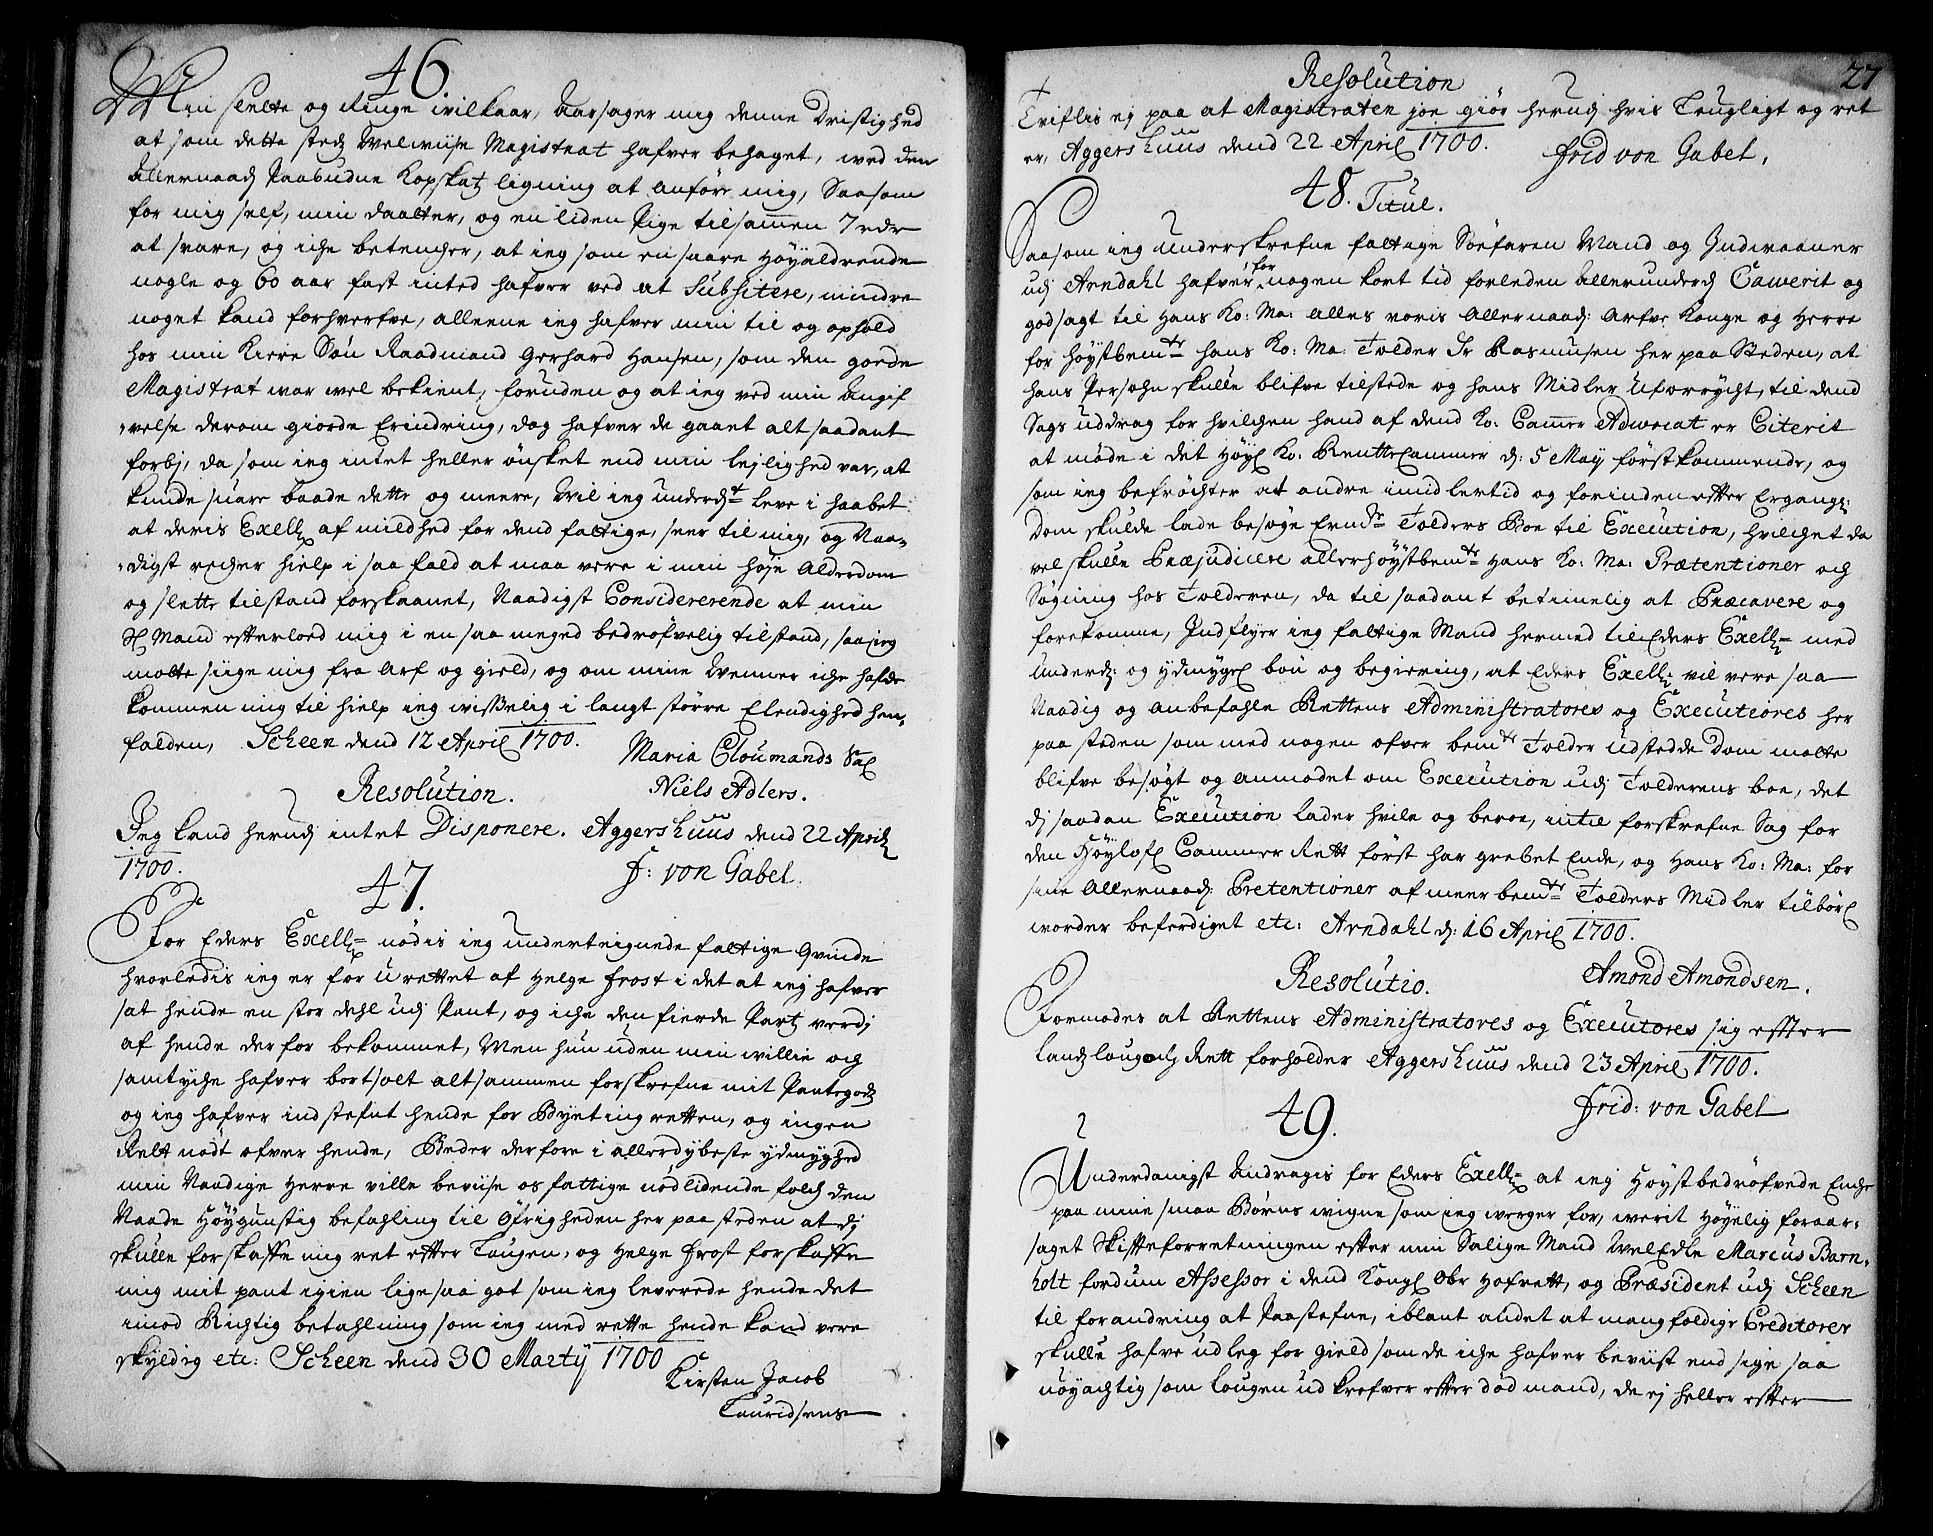 46.
Min slette og Ringe wilkaar, Aarsager mig denne Dristighed
at som dette steds Welwiise Magistrat hafver behaget, wed den
Allernaads Paabudne Kopskatz ligning at anføre mig, Saasom
for mig self, min daatter, og en liden Pige tilsamen 7 rdr
at svare, og iche betencher, at ieg som en saare Høyaldrende
nogle og 60 aar fast inted hafver ved at Subsitere, mindre
noget kand forhverfve, alleene ieg hafver min til og ophold
hos min Kiere Søn Raadmand Gerhard Hansen, som den goede
Magistrat war wel bekient, foruden og at ieg ved min Angif
velse derom giorde Erindring, dog hafver de gaaet alt saadant
forbj, da som ieg intet heller ønsket end min lejlighed var, at
kunde suare baade dette og meere, Wil ieg underdt leve i haabet
at deris Exell af mildhed for dend fattige, seer til mig, og Naa-
digst recher hielp i saa fald at maa vere i min høje Alderdom
og slette tilstand forskaanet, Naadigst Considererende at min
Sl Mand efterloed mig i en saa meged bedrøfvelig tilstand, saa ieg
motte siige mig fra Arf og gield, og om mine Wenner iche hafde
kommen mig til hielp ieg wisselig i langt større Elendighed hen-
falden, Scheen dend 12 April 1700.
Maria Cloumands Sal
Resolution. Niels Adlers.
Jeg kand herudj intet Disponere. Aggershuus dend 22 April
1700. F: von Gabel.
47.
For Eders Exell nødis ieg undertegnede fattige Qvinde
hvorledis ieg er for urettet af Helge Frost i det at ieg hafver
sat hende en stor dehl udj Pant, og iche den fierde Part verdj
af hende derfor bekommet, Men hun uden min willie och
samtyche hafver bortsolt altsammen forskrefne mit Pantegods
og ieg hafver indstefnt hende for Byetingretten, og ingen
Relt nødt ofver hende, Beder derfore i allerdybeste ydmyghed
min Naadige Herre ville beviise os fattige nødlidende folch den
Naade Høygunstig befahling til Øfrigheden her paa steden at dj
skulle forskaffe mig ret efter Laugen, og Helge Frost forskaffe
mig mit pant igien lige saa got som ieg leverede hende det
imod Richtig betahlning som ieg med rette hende kand vere
skyldig etc: Scheen dend 30 Marty 1700
Kirsten Jacob
Lauridsens
27
Resolution
Tvifles ej paa at Magistraten joe giør herudj hvis Lougligt og ret
er, Aggershuus dend 22 April 1700. Frid von Gabel,
48. Titul.
Saasom ieg underskrefne fattige Søefaren Mand og Indwaaner
udj Arndahl hafver for nogen kort tid forleden allerunderd Cawerit og
godsagt til Hans Ko: Ma: Alles voris Allernaad: Arfve Konge og Herre
for høystbemte hans Ko: Ma: Tolder Sr Rasmusen her paa Steden, at
hans Persohn skulle blifve tilstede og hans Midler Uforrycht, til dend
Sags uddrag for hvilchen hand af dend Ko: Camer Adwocat er Citerit
at møde i det Høyl Ko: RentteCammer d: 5 Maij førstkommende, og
som ieg befrøchter at andre imidlertid og forinden efter Ergangn:
Dom skulde lade besøge Ernde Tolders Boe til Execution, hvilchet da
vel skulle Præjudicere allerhøystbemte Hans Ko: Ma: Prætentioner och
Søgning hos Tolderen, da til saadant betimelig at Præcavere og
forekomme, Indflyer ieg fattige Mand hermed til Eders Exell med
underd: og ydmygl bøn og begiering, at Eders Exell: vil vere saa
Naadig og anbefahle Rettens Administratores og Executores her
paa steden som med nogen ofver bemte Tolder udstedde Dom motte
blifve besøgt og anmodet om Execution udj Tolderens boe, det
dj saadan Execution lader hvile og beroe, intil forskrefne Sag for
den Høylofl Cammer Rett først har grebet Ende, og Hans Ko: Ma: for
sine Allernaad: Pretentioner af meerbemte Tolders Midler tilbørl
worder beferdiget etc: Arndahl d: 16 April 1700.
Resolutio. Amond Amondsen.
Formodes at Rettens Administratores og Executores sig efter
Landslougens Rett forholder Aggershuus dend 23 April 1700.
49. Frid: von Gabel
Underdanigst Andragis for Eders Exell at ieg Høystbedrøfvede Enche
paa mine smaa Børns wegne som ieg werger for, werit Høyelig foraar-
saget Skifteforretningen efter min Salige Mand WelEdle Marcus Barn-
holt fordum Assessor i dend Kongl Obr Hofrett, og Præsident udj Scheen
til forandring at Paastefne, iblant andet at mangfoldige Creditorer
skulle hafve udleg for gield som de iche hafver beviist end sige saa
nøyachtig som Lougen udkrefver efter død mand, de ej heller efter